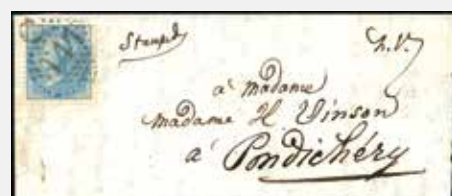 Stamped
à Madame
Madame H Vinson
à Pondichéry